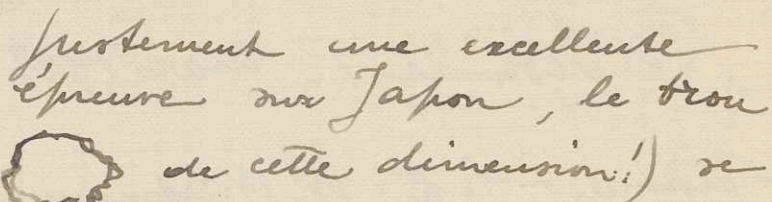 justement une excellente
épreuve sur Japon, le trou
de cette dimension!) se